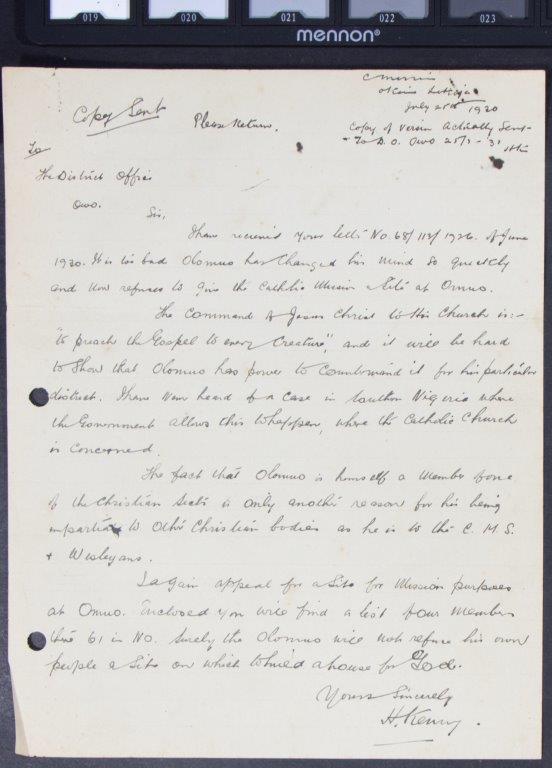 019 020 021 022 023
mennon®
July 25th 1930
Copy Sent
Please Return.
Copy of Version Actually Sent
To D.O. Owo 25/7-31
To
The District Office
Owo.
Sir,
I have received your lett No. 68/112/1926. of June
1930. It is too bad Olomuo has changed his mind so quickly
and now refuses to give the Catholic Mission a Site at Omuo.
The Command of Jesus Christ to His Church is:-
"to preach the Gospel to every Creature", and it will be hard
to Show that Olomuo has power to Countermand it for his particular
district. I have never heard of a case in Southern Nigeria where
the Government allows this to happen, where the Catholic Church
is Concerned.
The fact that Olomuo is himself a Member of one
of the Christian Sects is only another reason for his being
impartial to other Christian bodies as he is to the C. M. S.
+ Wesleyans.
I again appeal for a Site for Mission purposes
at Omuo. Enclosed you will find a list of our Members
there 61 in No. Surely the Olomuo will not refuse his own
people a Site on which to build a house for God.
Yours Sincerely
H. Kenny.